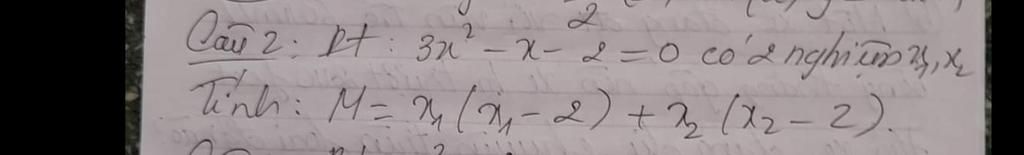 Câu 2: Pt: 3x² - x - 2 = 0 có 2 nghiệm x₁, x₂
Tính: M = x₁(x₁ - 2) + x₂(x₂ - 2).